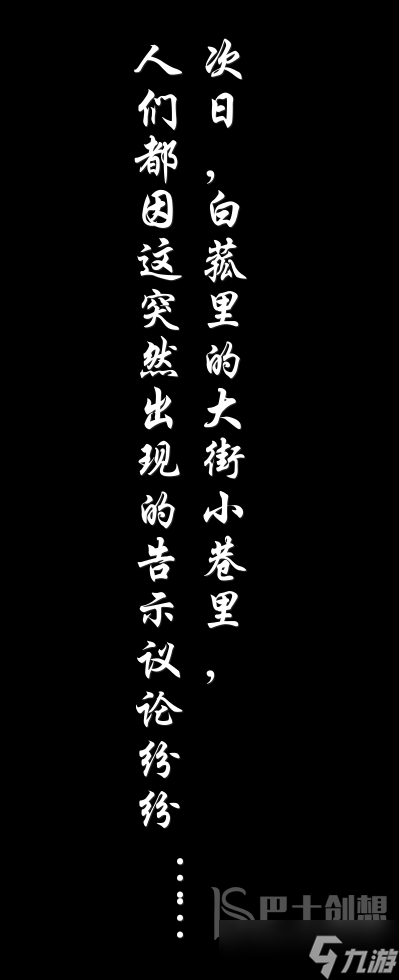 次日，白菰里的大街小巷里，
人们都因这突然出现的告示议论纷纷
……
巴士创想
九游